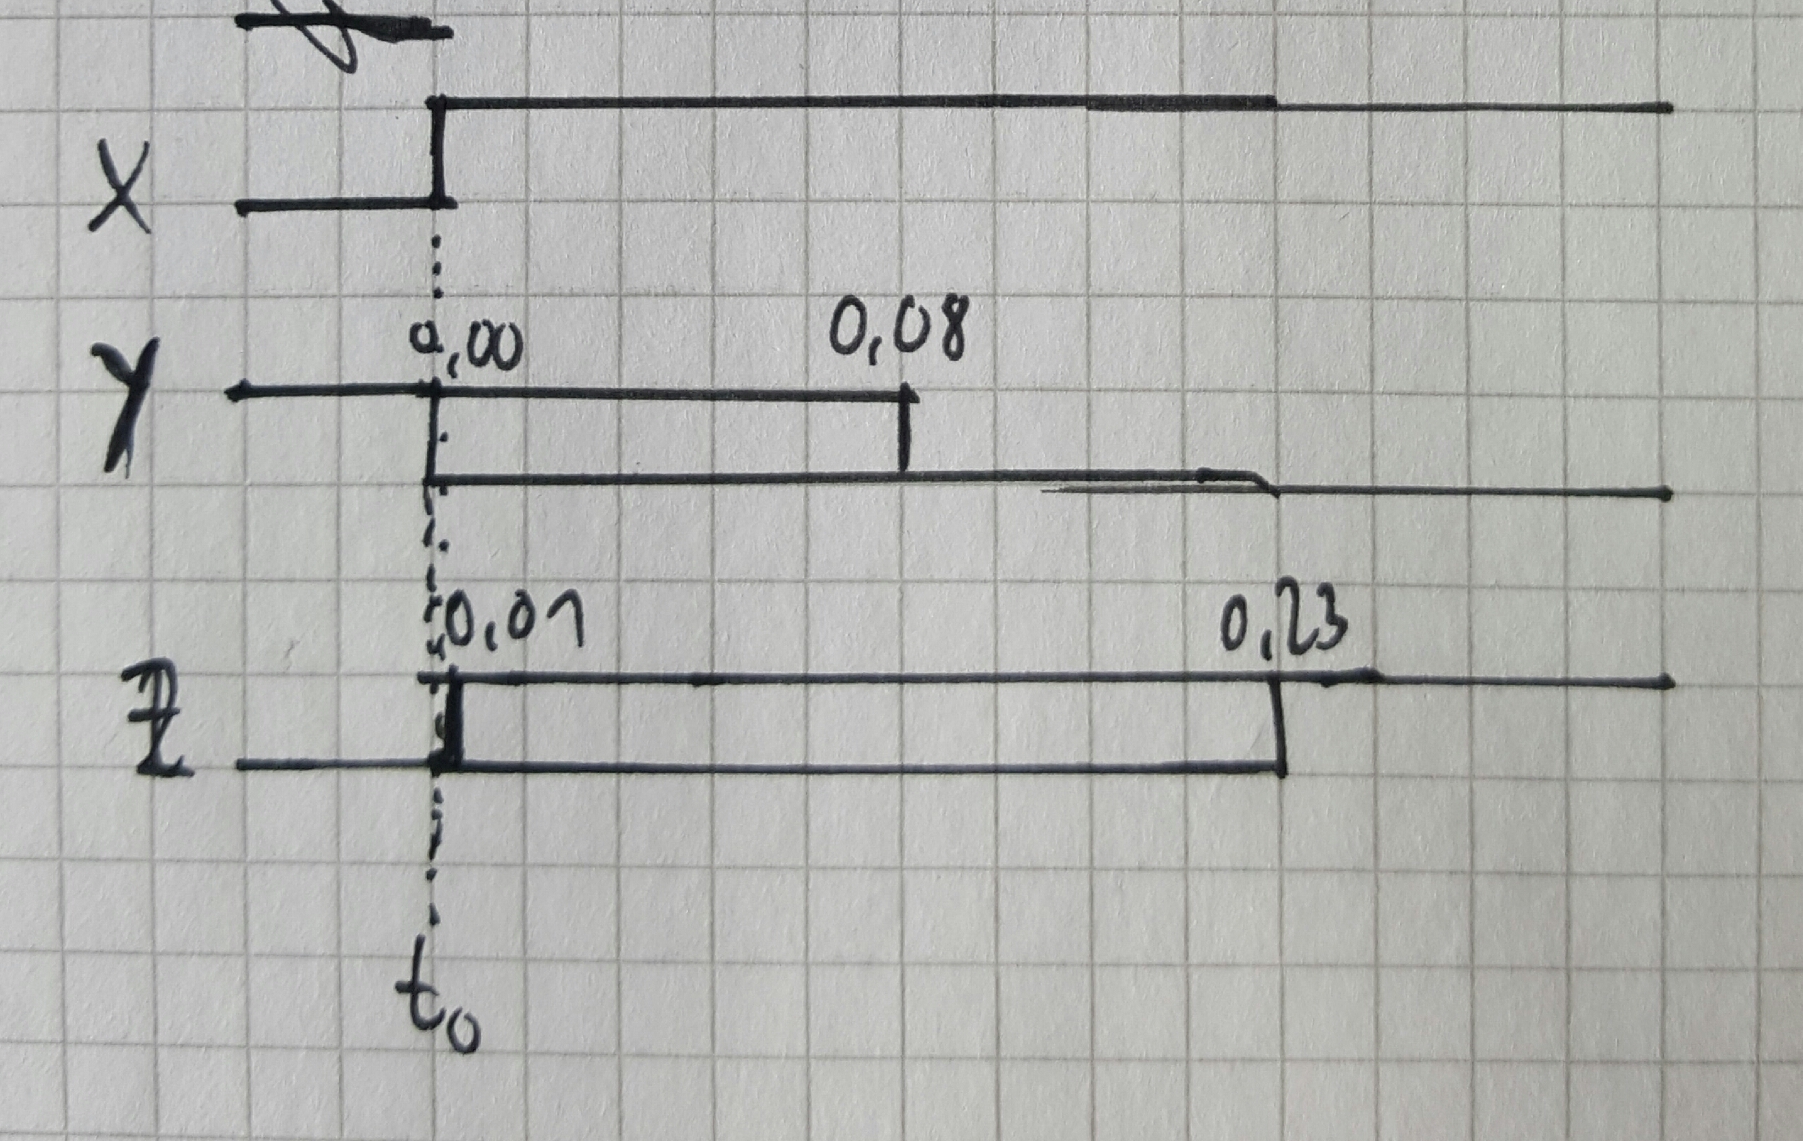 X
0,00 0,08
Y
0,01 0,23
Z
t₀